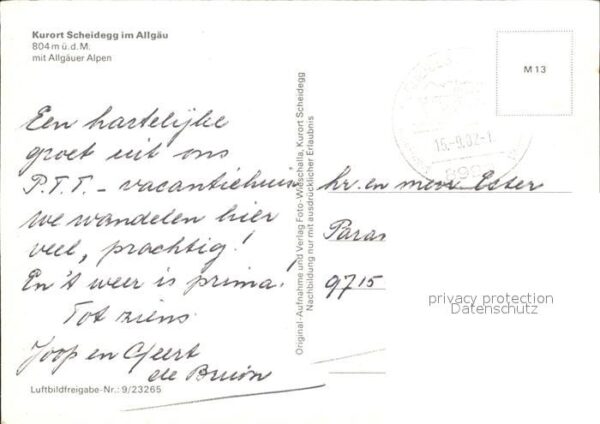 Kurort Scheidegg im Allgäu
804 m ü. d. M.
mit Allgäuer Alpen
Een hartelijke
groet uit ons
P.T.T. - vacantiehuis
we wandelen hier
veel, prachtig!
En 't weer is prima!
Tot ziens
Joop en Geert
de Bruin
Luftbildfreigabe-Nr.: 9/23265
Original-Aufnahme und Verlag Foto-Wieschalla, Kurort Scheidegg
Nachbildung nur mit ausdrücklicher Erlaubnis
M 13
15.-9.82-1
hr. en mevr Ester
Paras
9715
privacy protection
Datenschutz